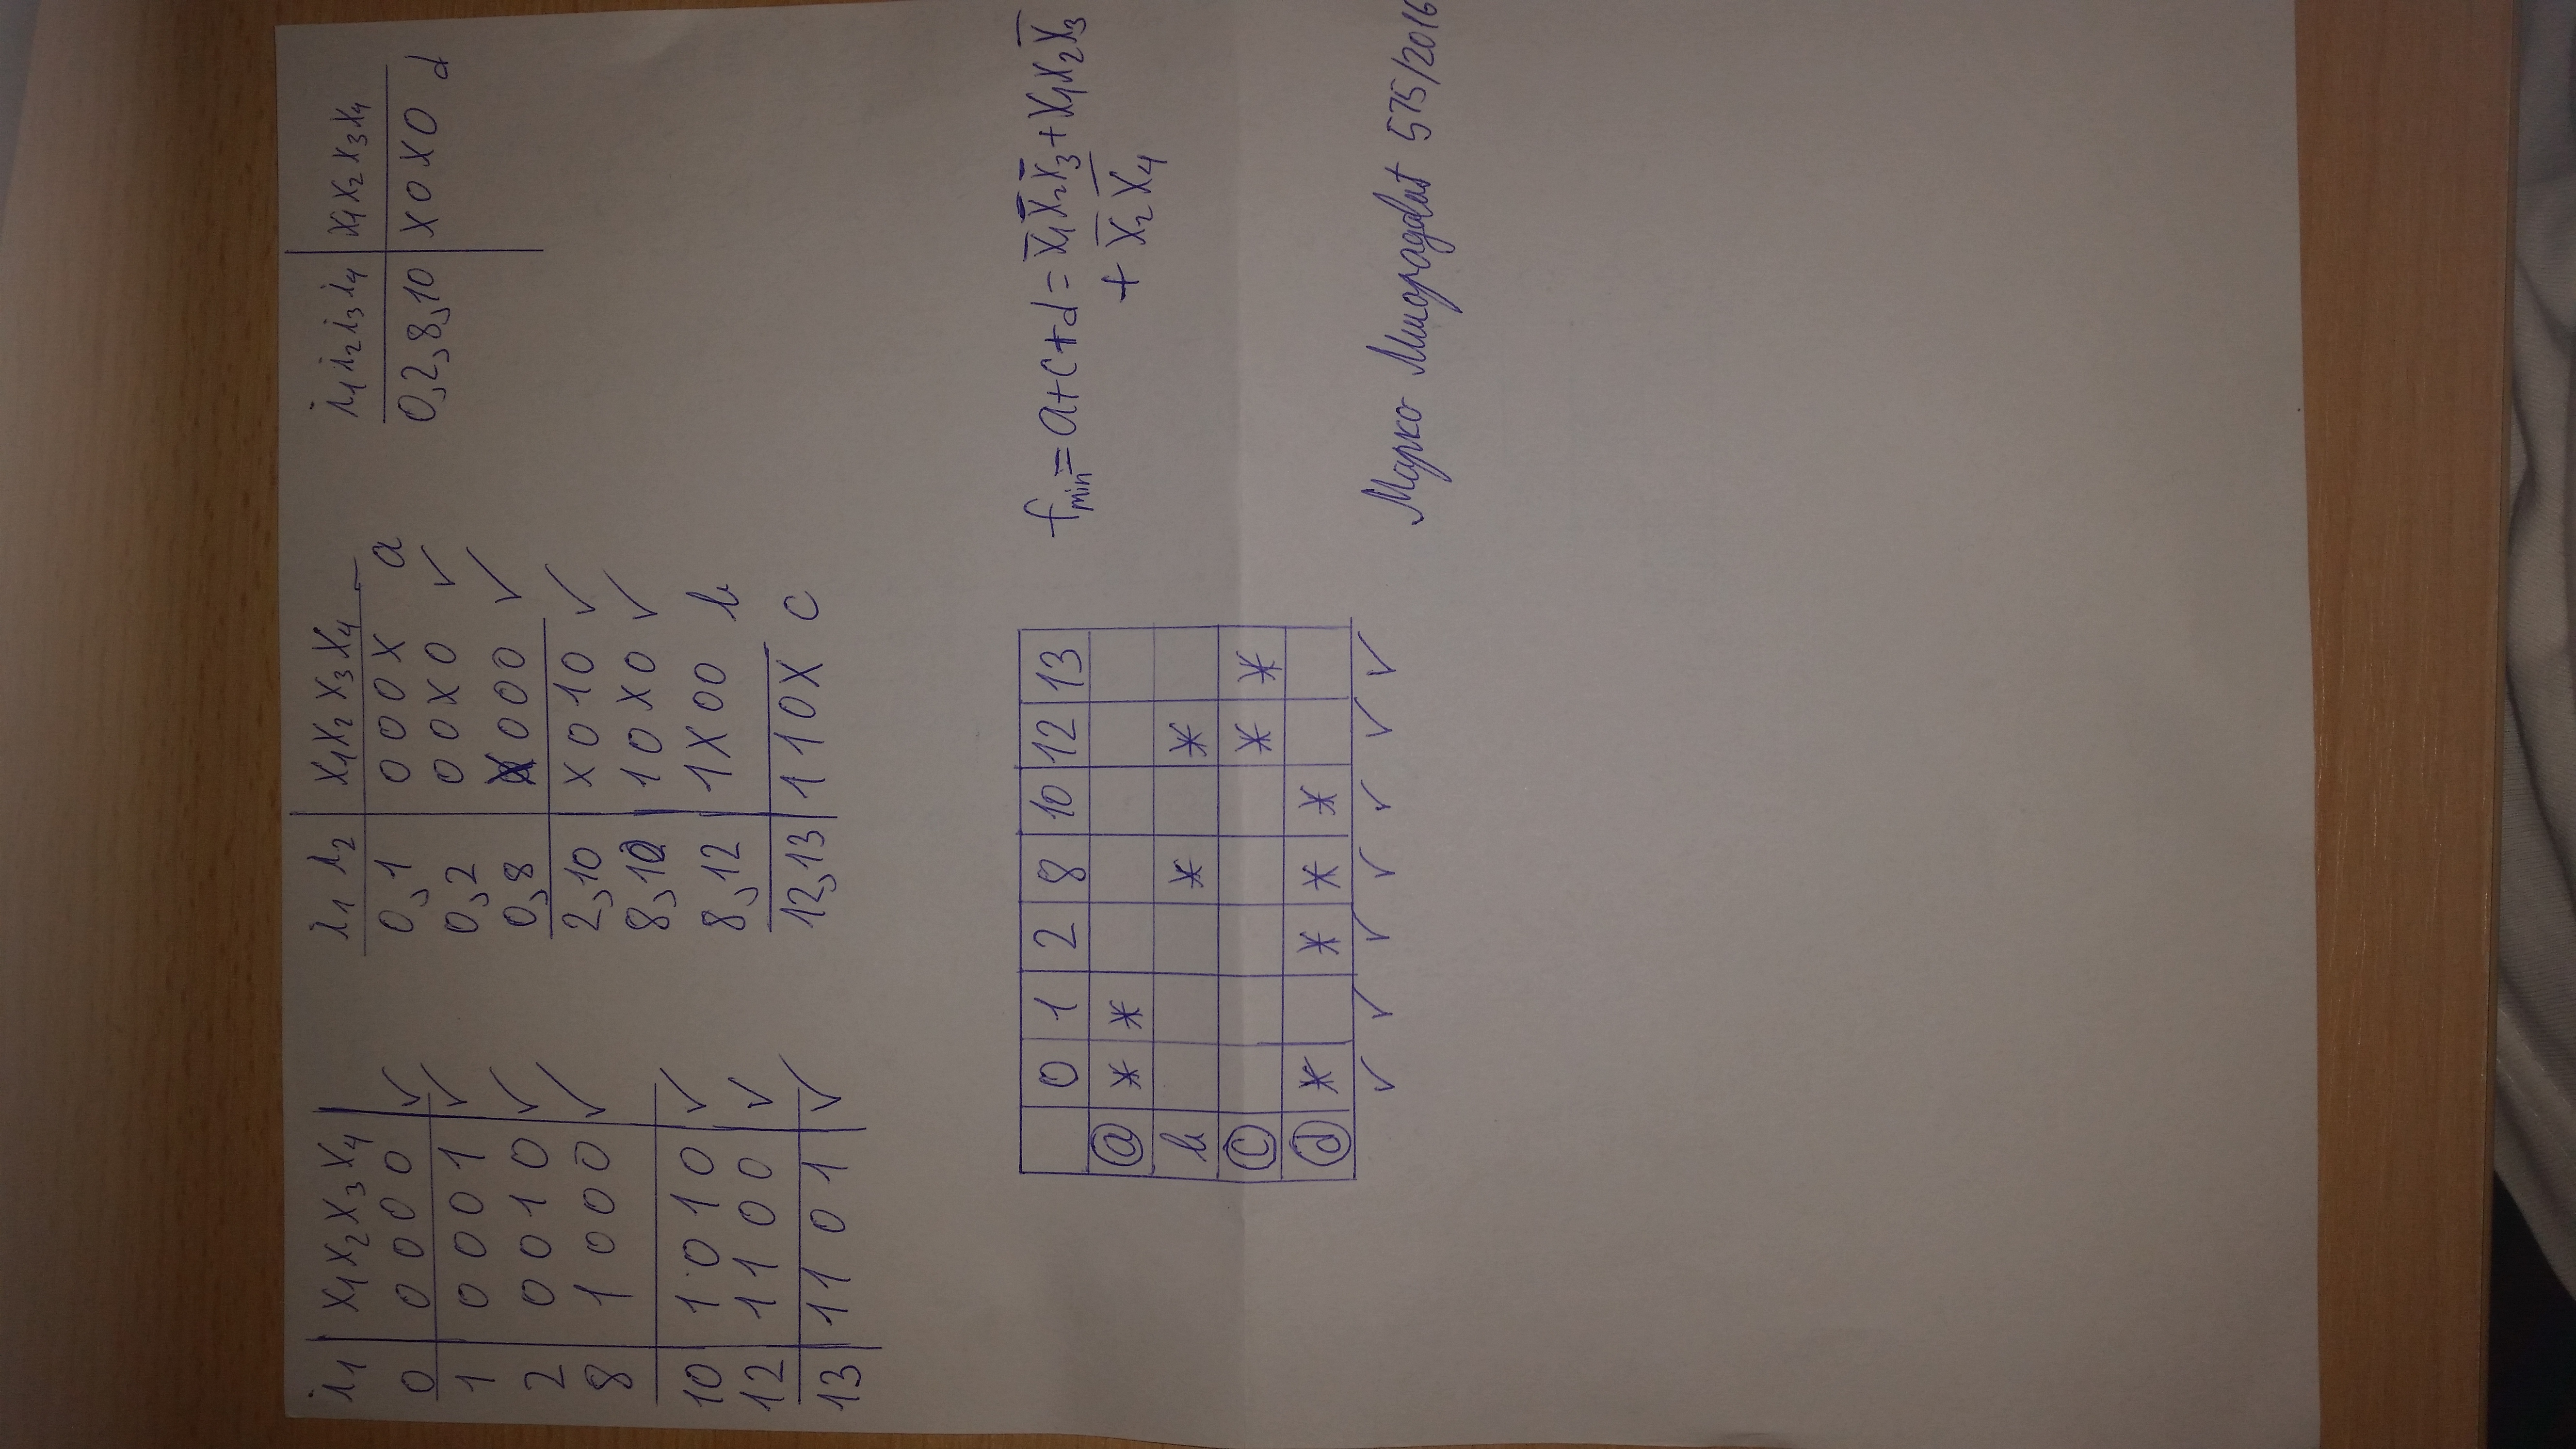 i₁ | x₁ x₂ x₃ x₄ |
0 | 0 0 0 0 | ✓
1 | 0 0 0 1 | ✓
2 | 0 0 1 0 | ✓
8 | 1 0 0 0 | ✓
10 | 1 0 1 0 | ✓
12 | 1 1 0 0 | ✓
13 | 1 1 0 1 | ✓
i₁ i₂ | x₁ x₂ x₃ x₄
0,1 | 0 0 0 X a
0,2 | 0 0 X 0 ✓
0,8 | X 0 0 0 ✓
2,10 | X 0 1 0 ✓
8,10 | 1 0 X 0 ✓
8,12 | 1 X 0 0 b
12,13 | 1 1 0 X c
i₁ i₂ i₃ i₄ | x₁ x₂ x₃ x₄
0,2,8,10 | X 0 X 0 d
| 0 | 1 | 2 | 8 | 10 | 12 | 13
ⓐ | * | * | | | | |
b | | | | * | | * |
ⓒ | | | | | | * | *
ⓓ | * | | * | * | * | |
✓ ✓ ✓ ✓ ✓ ✓ ✓
f_min = a+c+d = x̄₁x̄₂x̄₃ + x₁x₂x̄₃
+ x̄₂x̄₄
Марко 575/2016